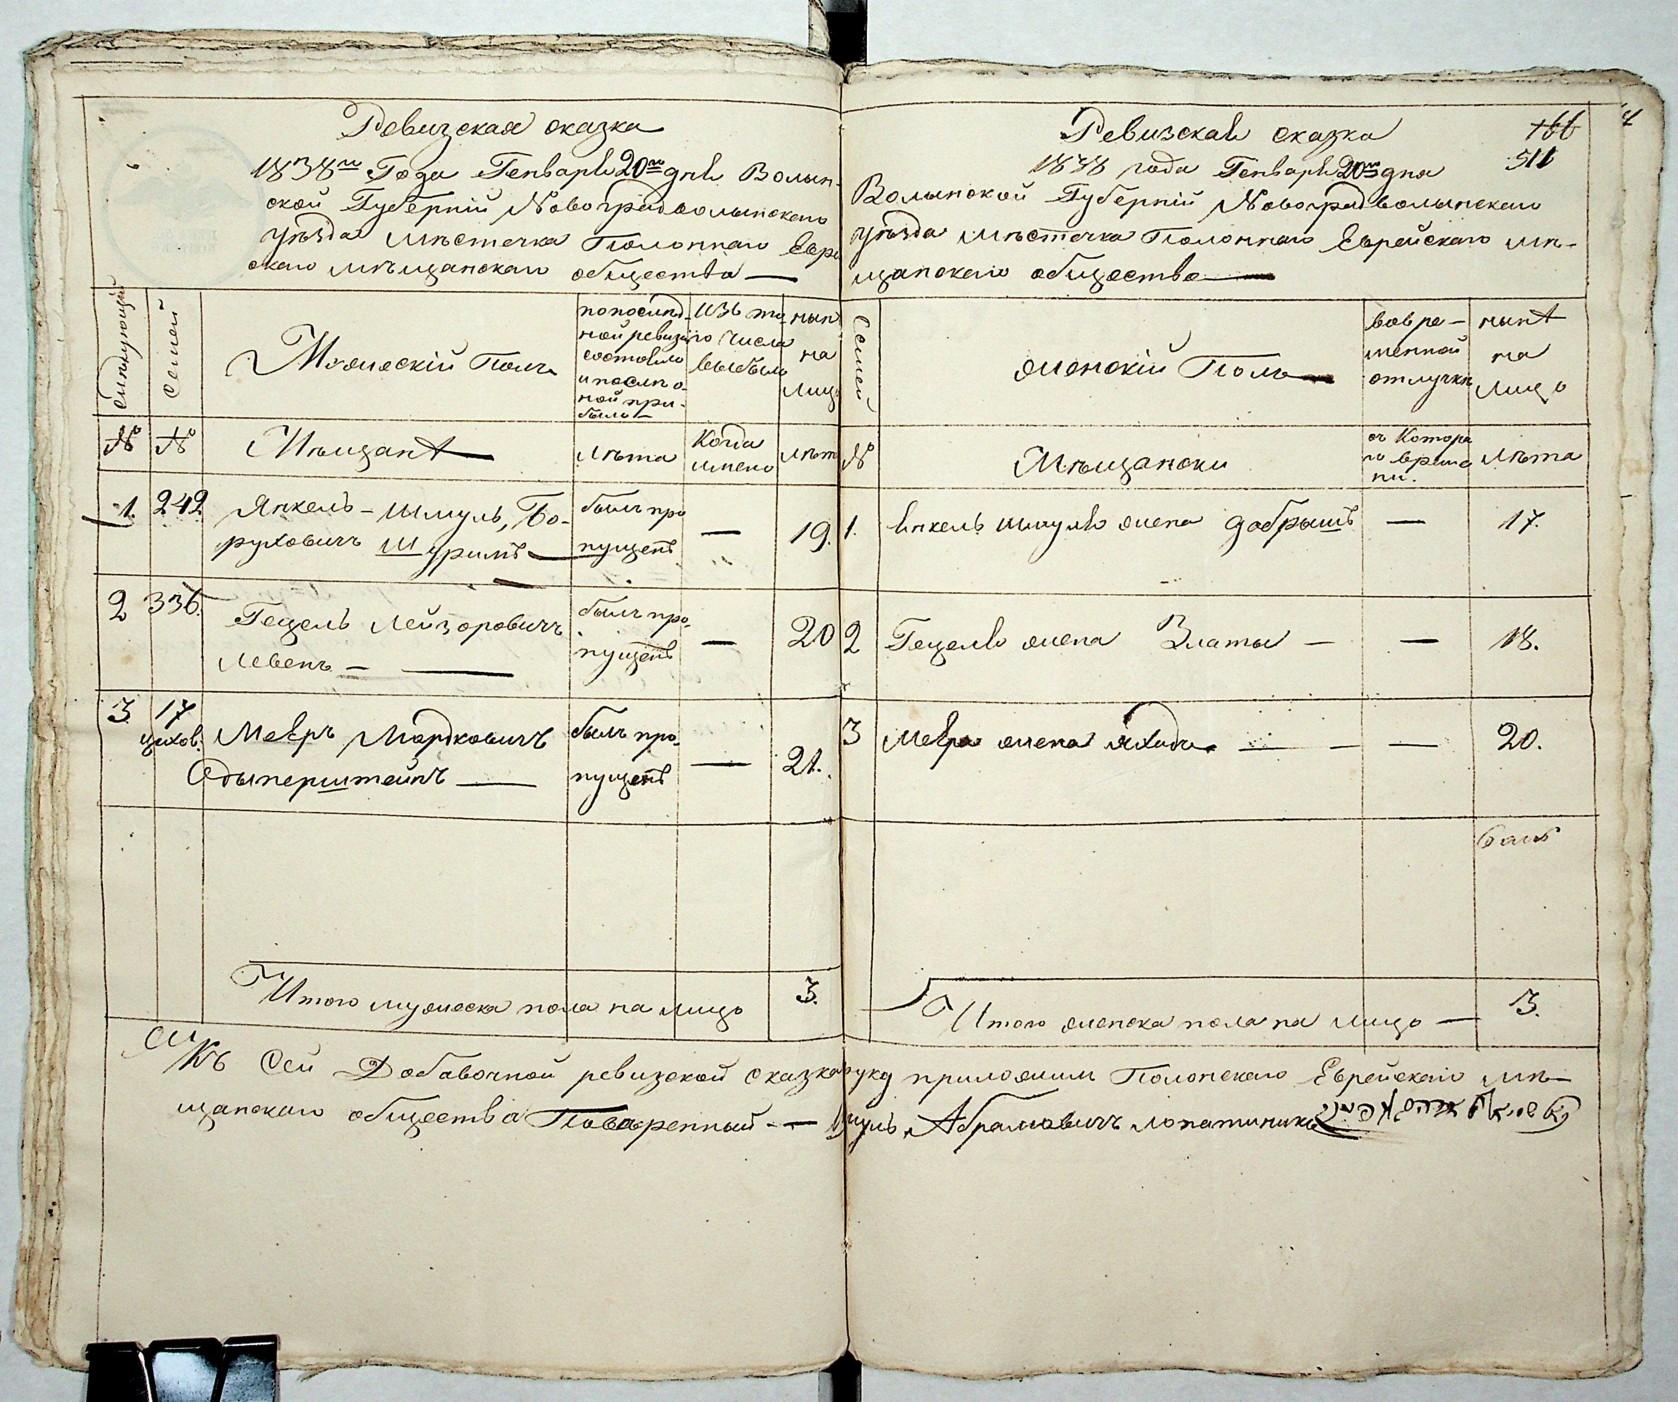 Ревизская сказка
1838го Года Генваря 20го дня Волын-
ской Губерніи Новоградволынскаго
уѣзда мѣстечка Полоннаго Евре
скаго мѣщанскаго общества —
слѣдующій
Семей
Мужескій Полъ
по послѣд-
ной ревизіи
состояло
и послѣ о
ной при-
было —
изъ то
го числа
выбыло
нынѣ
на
лицо
№
№
Мѣщанѣ
Лѣта
Когда
имено
лѣта
1.
242
Янкель-Шмуль, Бо-
руховичъ Шуримъ —
былъ про
пущенъ
—
19.
2
336.
Гецель Лейзоровичъ
Левенъ —
былъ про-
пущенъ
—
20
3
17
цехов.
Мееръ Мордковичъ
былъ про-
пущенъ
—
21.
Итого мужеска пола на лицо
3.
Ревизская сказка
166
511
1838 года Генваря 20го дня
Волынской Губерніи Новоградволынскаго
уѣзда мѣстечка Полоннаго Еврейскаго мѣ-
щанского общества —
Семей
женскій Полъ —
вовре-
менной
отлучкѣ
нынѣ
на
лицо
№
Мѣщански
съ Котора
го време
ни.
лѣта
1.
янкель шмуля жена добрышъ
—
17.
2
Гецеля жена Златы —
—
18.
3
Меера жена
—
20.
Итого женска пола на лицо —
3.
Къ Сей Добавочной ревизской сказкѣ руку приложилъ Полонскаго Еврейскаго мѣ-
щанскаго общества Повѣренный — Абрамовичъ